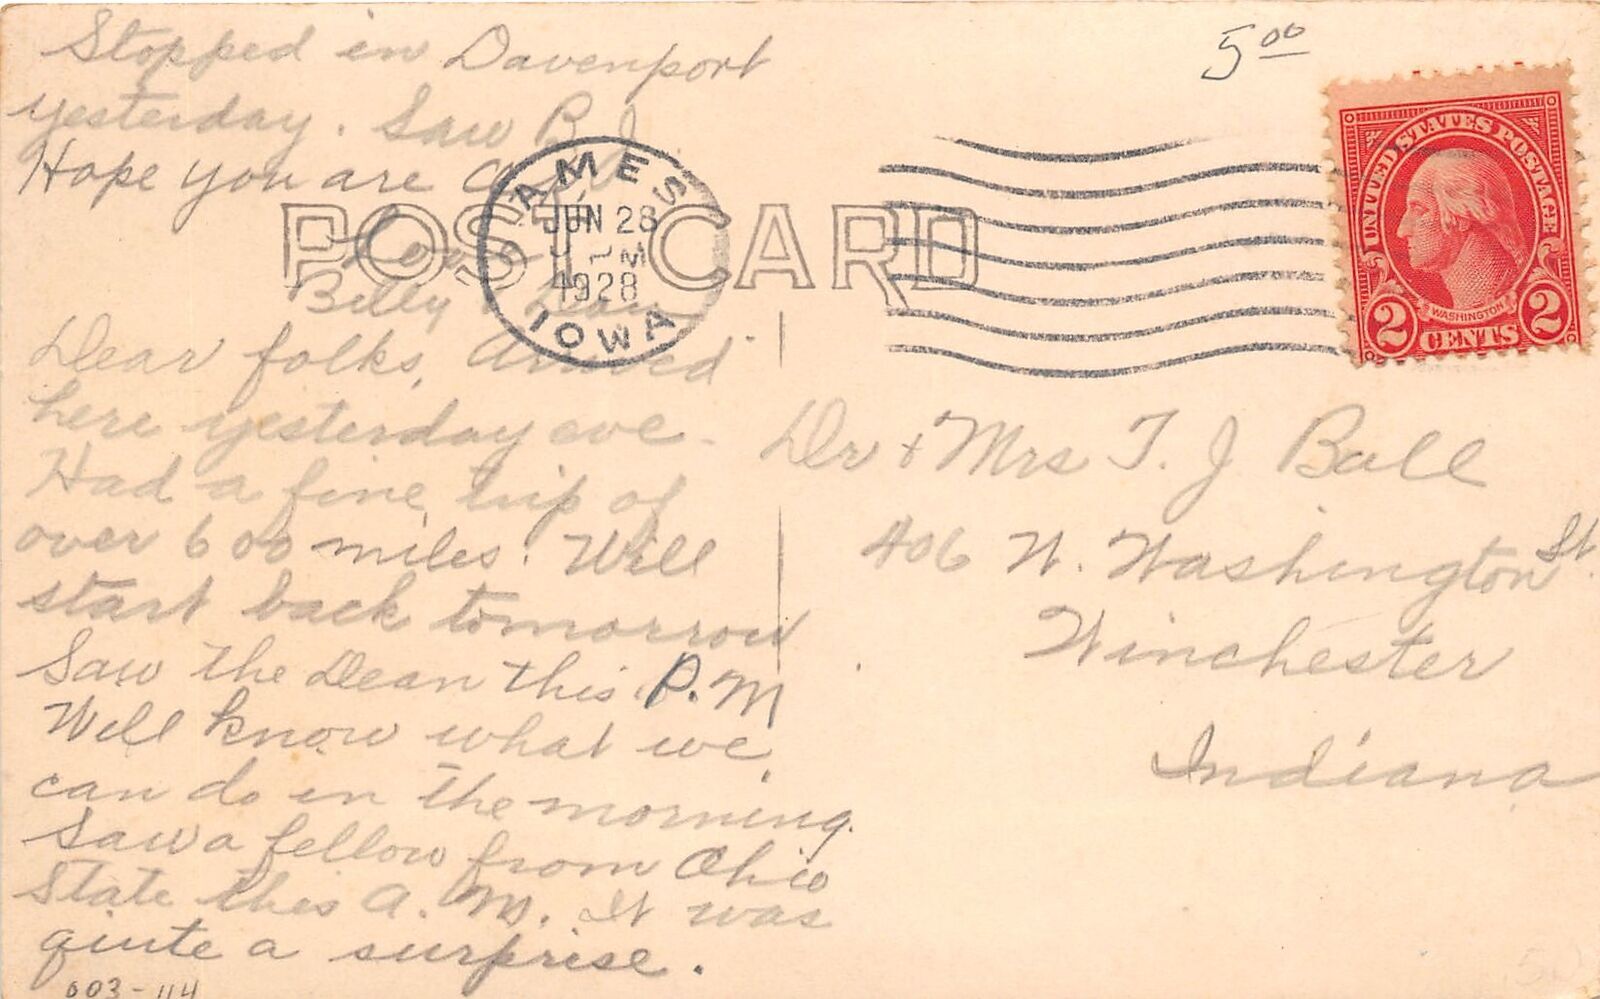 Stopped in Davenport
yesterday. Saw B. J.
Hope you are
Love
Billy & Dean
Dear folks, Arrived
here yesterday eve.
Had a fine trip of
over 600 miles. Will
start back tomorrow
Saw the Dean this P.M
Will know what we
can do in the morning.
Saw a fellow from Ohio
State this A. M. It was
quite a surprise.
003-114
POST CARD
AMES
JUN 28
1928
IOWA
5.00
UNITED STATES POSTAGE
WASHINGTON
2 CENTS 2
Dr & Mrs T. J Ball
406 W. Washington St.
Winchester
Indiana